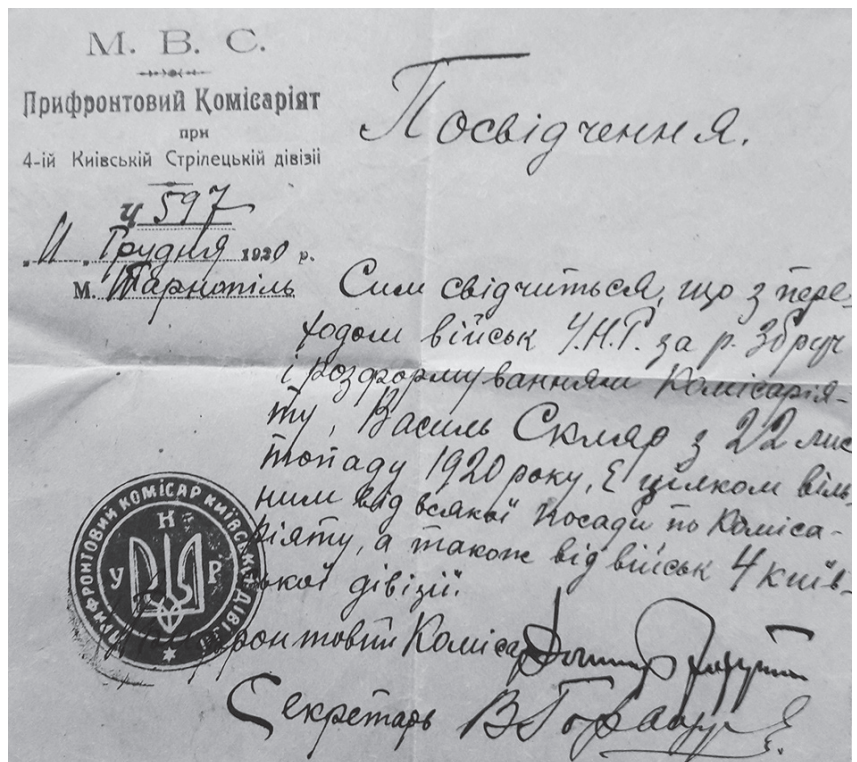 М. В. С.
Прифронтовий Комісаріят
при
4-ій Київській Стрілецькій дівізіі
ч 597
"11" Грудня 1920 р.
м. Тарнопіль
Посвідчення.
Сим свідчиться, що з пере-
ходом військ У.Н.Р. за р. Збруч
і розформуванням Комісарія-
ту, Василь Скляр з 22 лис
топаду 1920 року, є цілком віль-
ним від всякої посади по Коміса-
ріяту, а також від військ 4 київ-
ської дівізії.
Прифронтовий Комісар
Секретарь В
ПРИФРОНТОВИЙ КОМІСАР КИЇВСЬКОЇ ДІВІЗІЇ
У Н Р